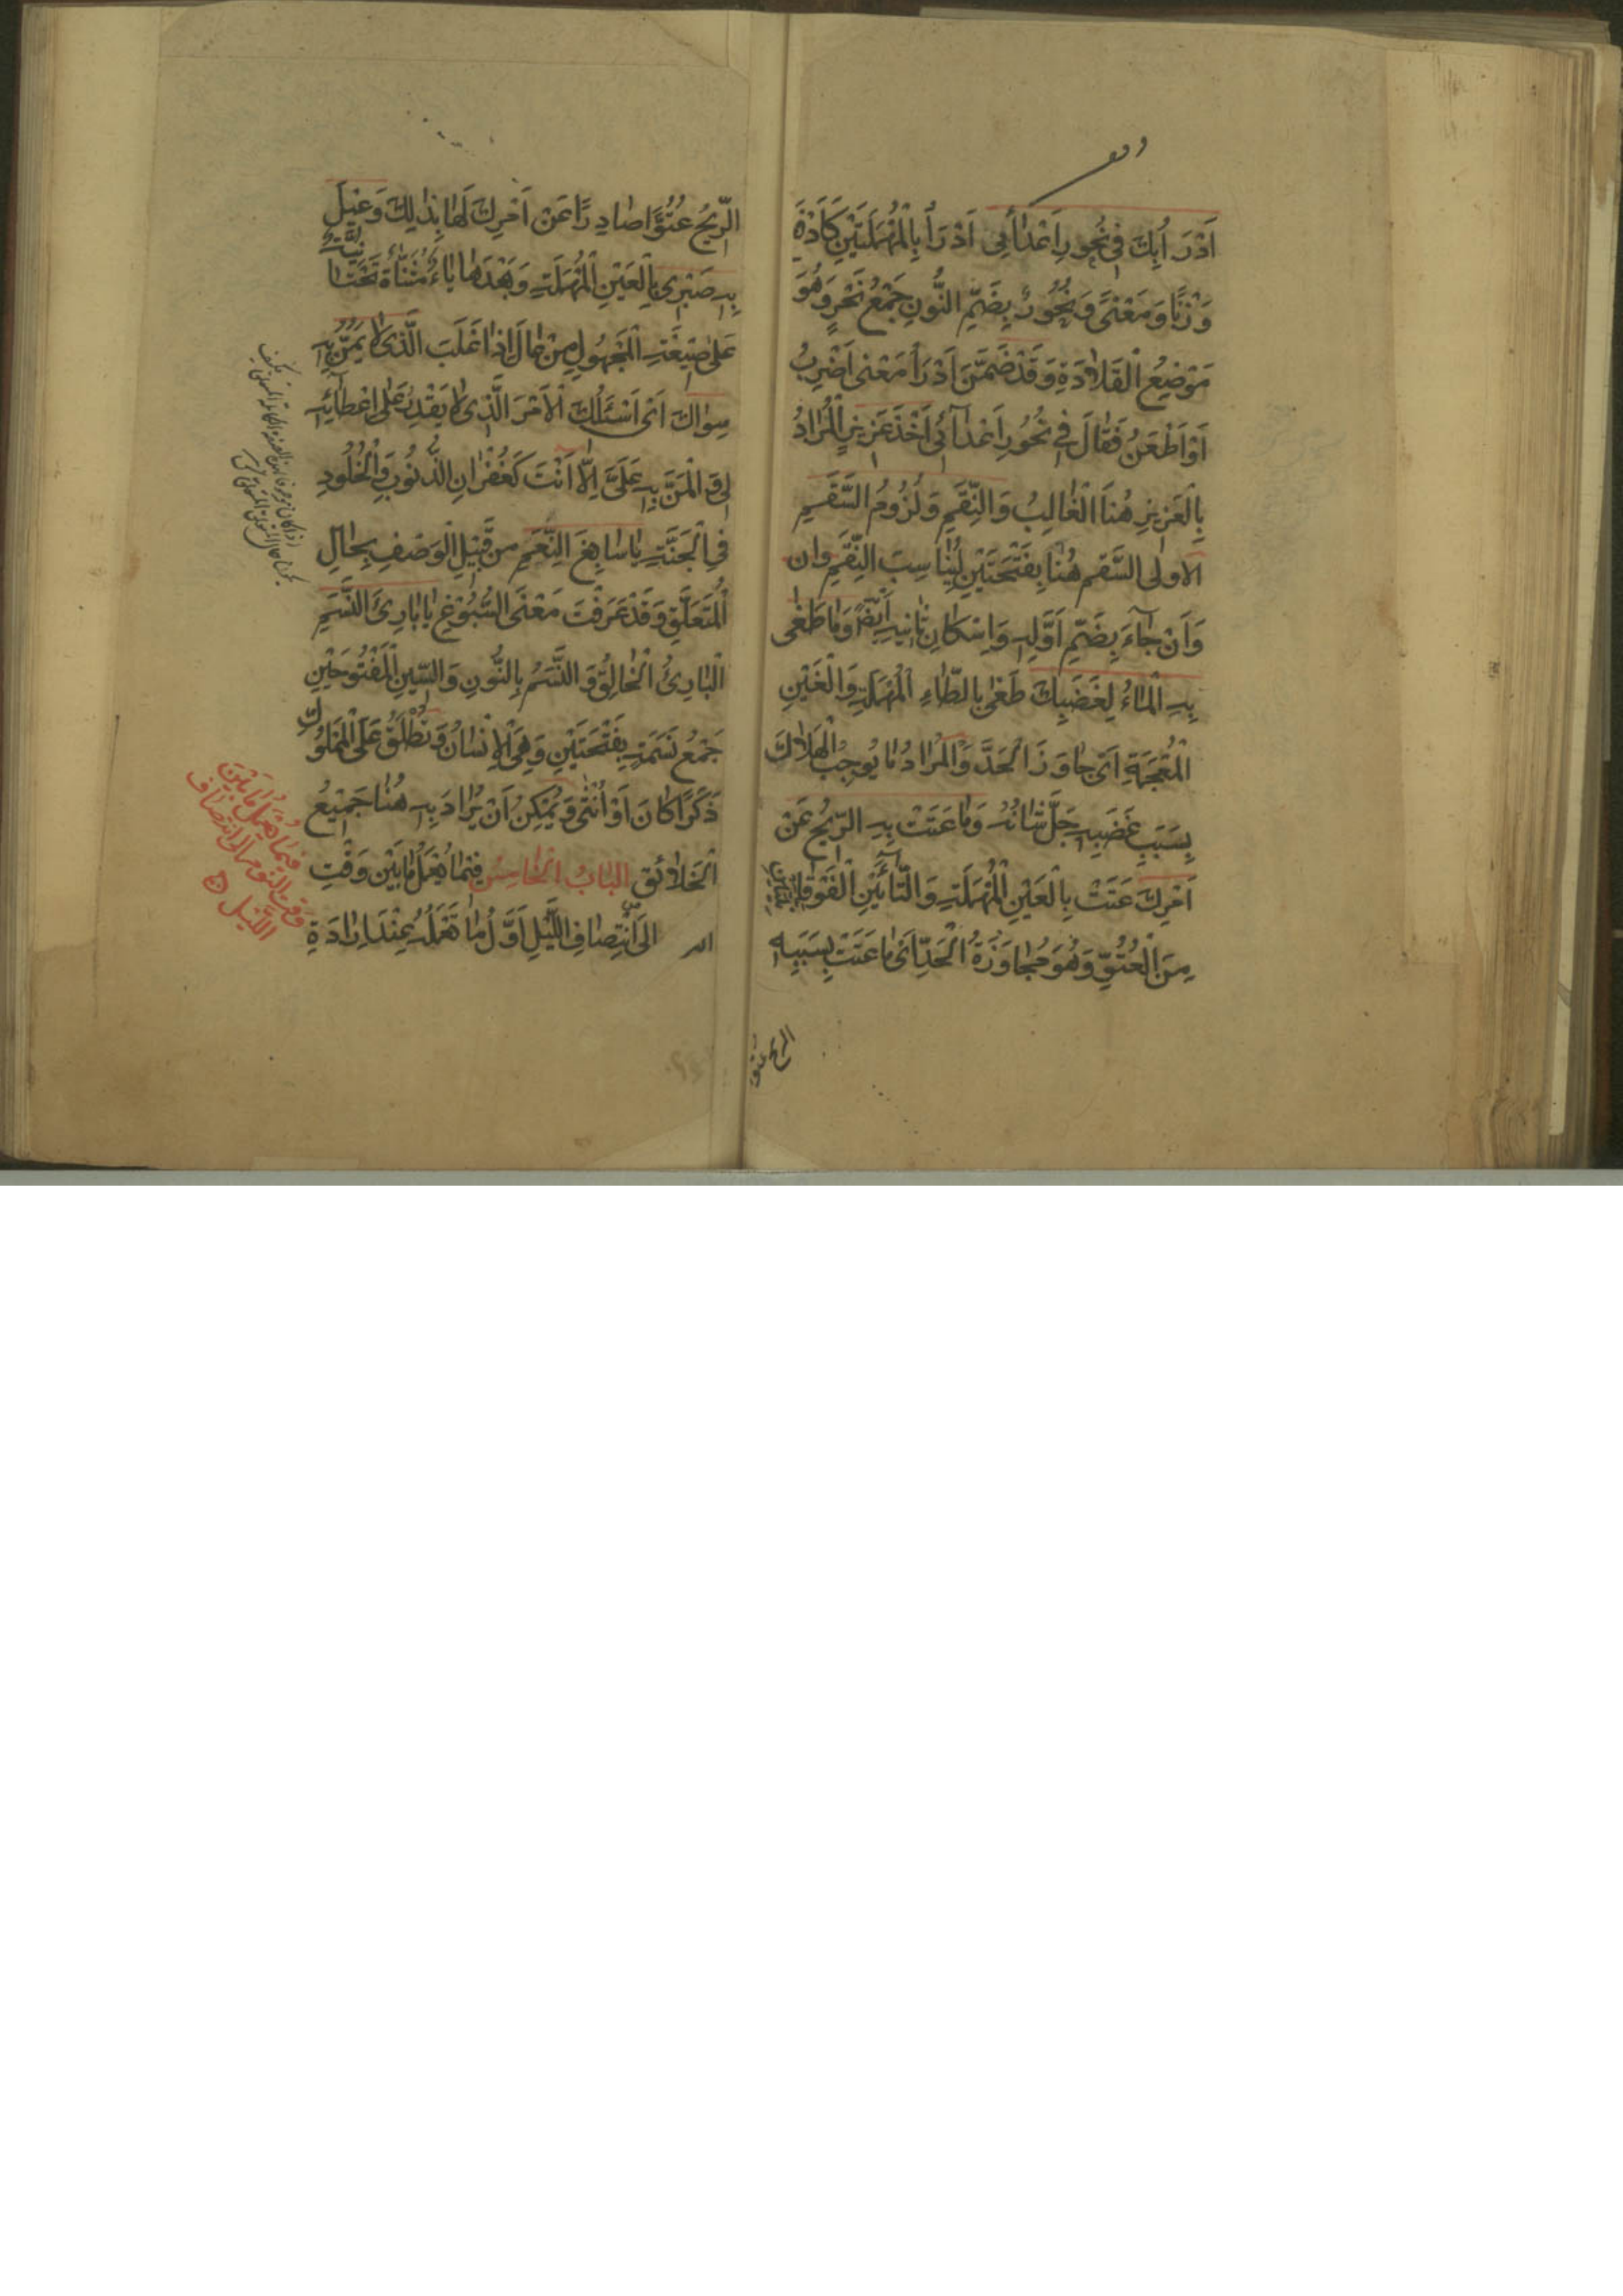 اَدْرَأُ بِكَ فِي نُحُورِ اَعْدَائِي اَدْرَأُ بِالْمُهْمَلَتَيْنِ كَاَدْفَعُ
وَزْنًا وَمَعْنًى وَنُحُورٌ بِضَمِّ النُّونِ جَمْعُ نَحْرٍ وَهُوَ
مَوْضِعُ الْقَلَادَةِ وَقَدْ ضَمَّنَ اَدْرَأُ مَعْنٰى اَضْرِبُ
اَوْ اَطْعَنُ فَقَالَ فِي نُحُورِ اَعْدَآئِي اَخْذَ عَزِيزٍ الْمُرَادُ
بِالْعَزِيزِ هُنَا الْغَالِبُ وَالنِّقَمِ وَلُزُومُ السَّقَمِ
الاولى السَّقَم هُنَا بِفَتْحَتَيْنِ لِيُنَاسِبَ النِّقَمِ وان
وَاَنْ جَآءَ بِضَمِّ اَوَّلِهِ وَاِسْكَانِ ثَانِيهِ اَيْضًا وَمَا طَغٰى
بِهِ الْمَاءُ لِغَضَبِكَ طَغٰى بِالطَّاءِ الْمُهْمَلَةِ وَالْغَيْنِ
الْمُعْجَمَةِ اَيْ جَاوَزَ الْحَدَّ وَالْمُرَادُ مَا يُوجِبُ الْهَلَاكَ
بِسَبَبِ غَضَبِهِ جَلَّ شَانُهُ وَمَا عَتَتْ بِهِ الرِّيحُ عَنْ
اَمْرِكَ عَتَتْ بِالْعَيْنِ الْمُهْمَلَةِ وَالتَّائَيْنِ الْفَوْقَانِيَّتَيْنِ
مِنَ الْعُتُوِّ وَهُوَ مُجَاوَزَةُ الْحَدِّ اَيْ مَا عَتَتْ بِسَبَبِهِ
الريح عتوا
الرِّيحُ عُتُوًّا صَادِرًا عَنْ اَمْرِكَ لَهَا بِذٰلِكَ وَعِيلَ
بِهِ صَبْرِي بِالْعَيْنِ الْمُهْمَلَةِ وَبَعْدَهَا يَاءٌ مُثَنَّاةٌ تَحْتَانِيَّةٌ
عَلٰى صِيغَةِ الْمَجْهُولِ مِنْ عَالَ اِذَا غَلَبَ الَّذِي لَا يَمُنُّ بِهِ
سِوَاكَ اَيْ اَسْئَلُكَ الْاَمْرَ الَّذِي لَا يَقْدِرُ عَلٰى اِعْطَآئِهِ
لِي وَالْمَنِّ بِهِ عَلَيَّ اِلَّا اَنْتَ كَغُفْرَانِ الذُّنُوبِ وَالْخُلُودِ
فِي الْجَنَّةِ يَا سَابِغَ النِّعَمِ مِنْ قَبِيلِ الْوَصْفِ بِحَالِ
الْمُتَعَلَّقِ وَقَدْ عَرَفْتَ مَعْنَى السُّبُوغِ يَا بَارِئَ النَّسَمِ
الْبَارِئُ الْخَالِقُ وَالنَّسَمُ بِالنُّونِ وَالسِّينِ الْمَفْتُوحَتَيْنِ
جَمْعُ نَسَمَةٍ بِفَتْحَتَيْنِ وَهِيَ الْاِنْسَانُ وَتُطْلَقُ عَلَى الْمَمْلُوكِ
ذَكَرًا كَانَ اَوْ اُنْثٰى وَيُمْكِنُ اَنْ يُرَادَ بِهِ هُنَا جَمِيعُ
الْخَلَائِقِ الْبَابُ الْخَامِسُ فِيمَا يُعْمَلُ مَا بَيْنَ وَقْتِ
النوم اِلَى انْتِصَافِ اللَّيْلِ اَوَّلُ مَا تَعْمَلُهُ عِنْدَ اِرَادَةِ
فِيمَا يُعْمَلُ مَا بَيْنَ
وَقْتِ النَّوْمِ اِلَى انْتِصَافِ
اللَّيْلِ